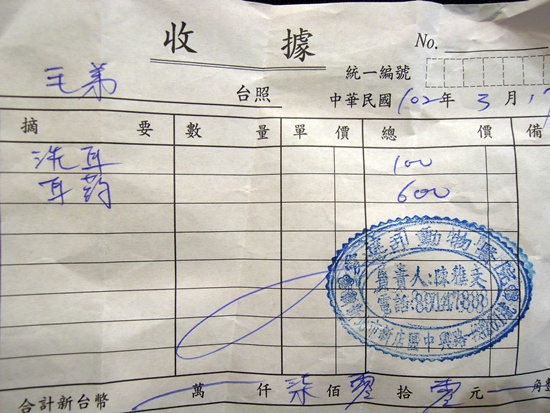 收 據
No.
統一編號
毛弟 台照
中華民國 102 年 3 月 17
摘 要 數 量 單 價 總 價 備
洗耳 100
耳药 600
動物醫院
負責人:陳雄文
電話:89147888
新店區中興路
合計新台幣 萬 仟 柒 佰 零 拾 零 元 角